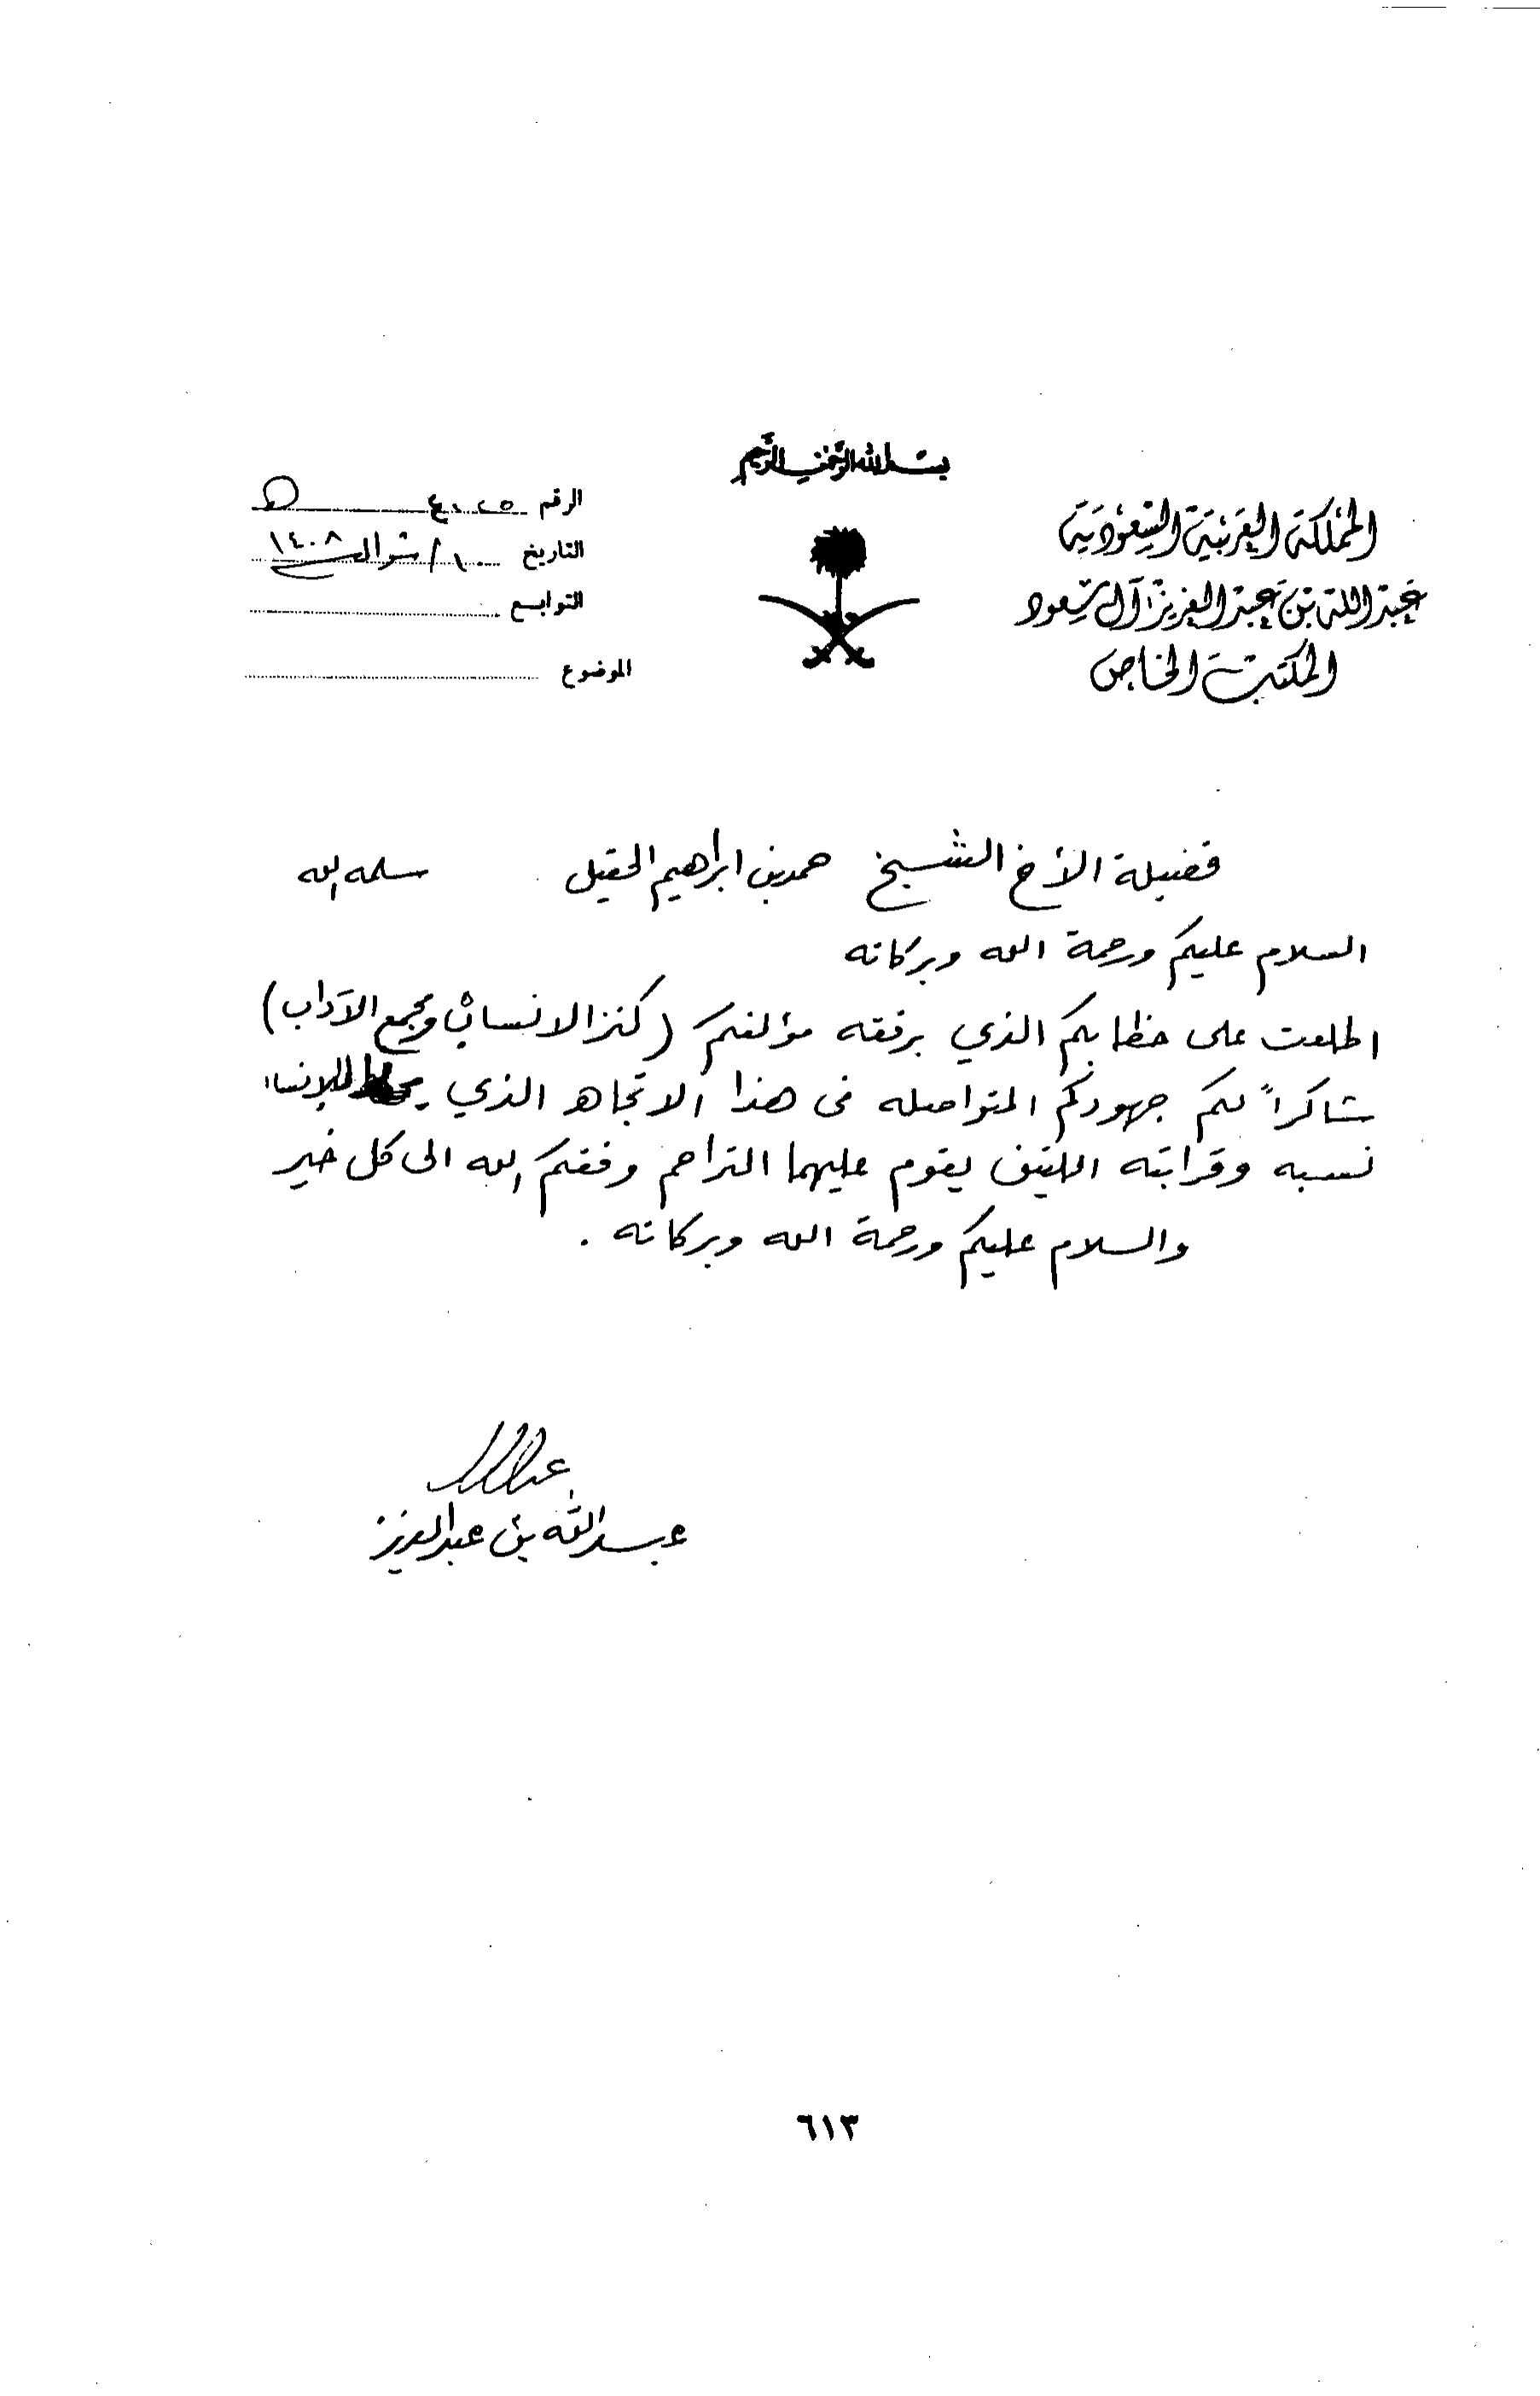 بسم الله الرحمن الرحيم
المملكة العربية السعودية
عبد الله بن عبد العزيز آل سعود
المكتب الخاص
الرقم
التاريخ ١٠/ شوال ١٤٠٨
التوابع
الموضوع
فضيلة الأخ الشيخ حمد بن ابراهيم الحقيل سلمه الله
السلام عليكم ورحمة الله وبركاته
اطلعت على خطابكم الذي برفقه مؤلفكم (كنز الانساب ومجمع الآداب)
شاكراً لكم جهودكم المتواصله فى هذا الاتجاه الذي للإنسان
نسبه وقرابته اللتين يقوم عليهما التراحم وفقكم الله الى كل خير
والسلام عليكم ورحمة الله وبركاته .
عبدالله
عبدالله بن عبدالعزيز
٦١٣